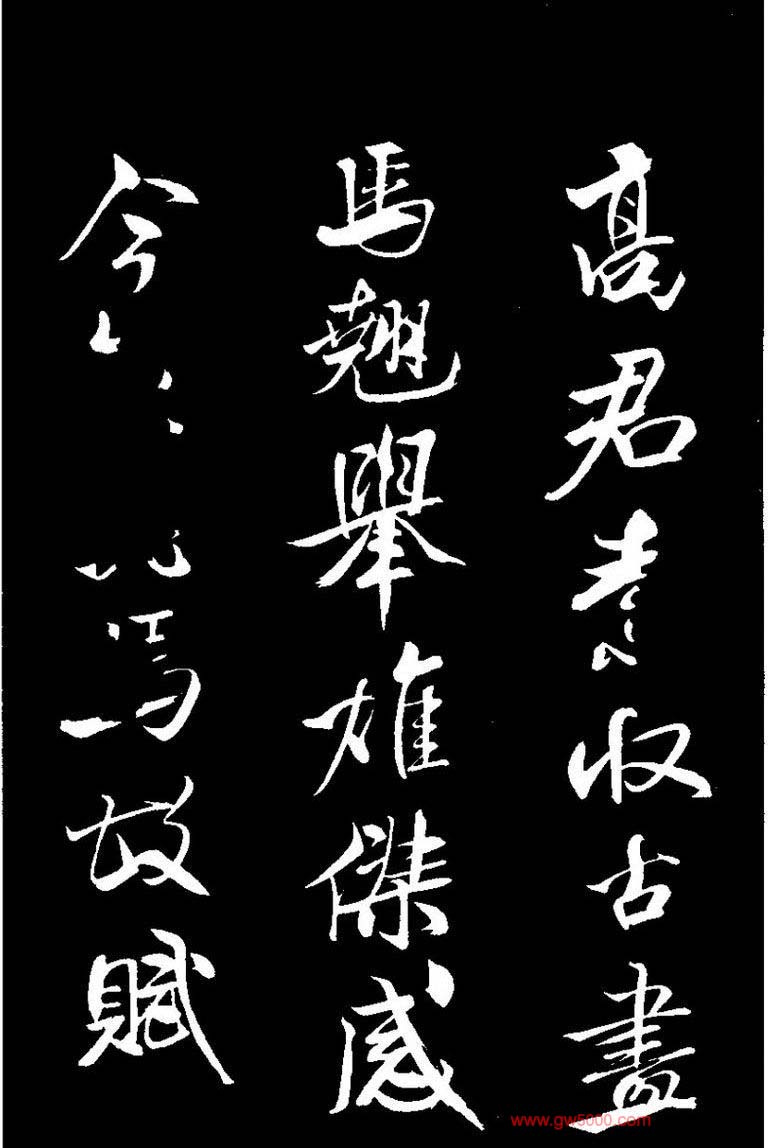 高君素收古畫
馬翹舉雄傑感
今馬故賦
www.gw5000.com